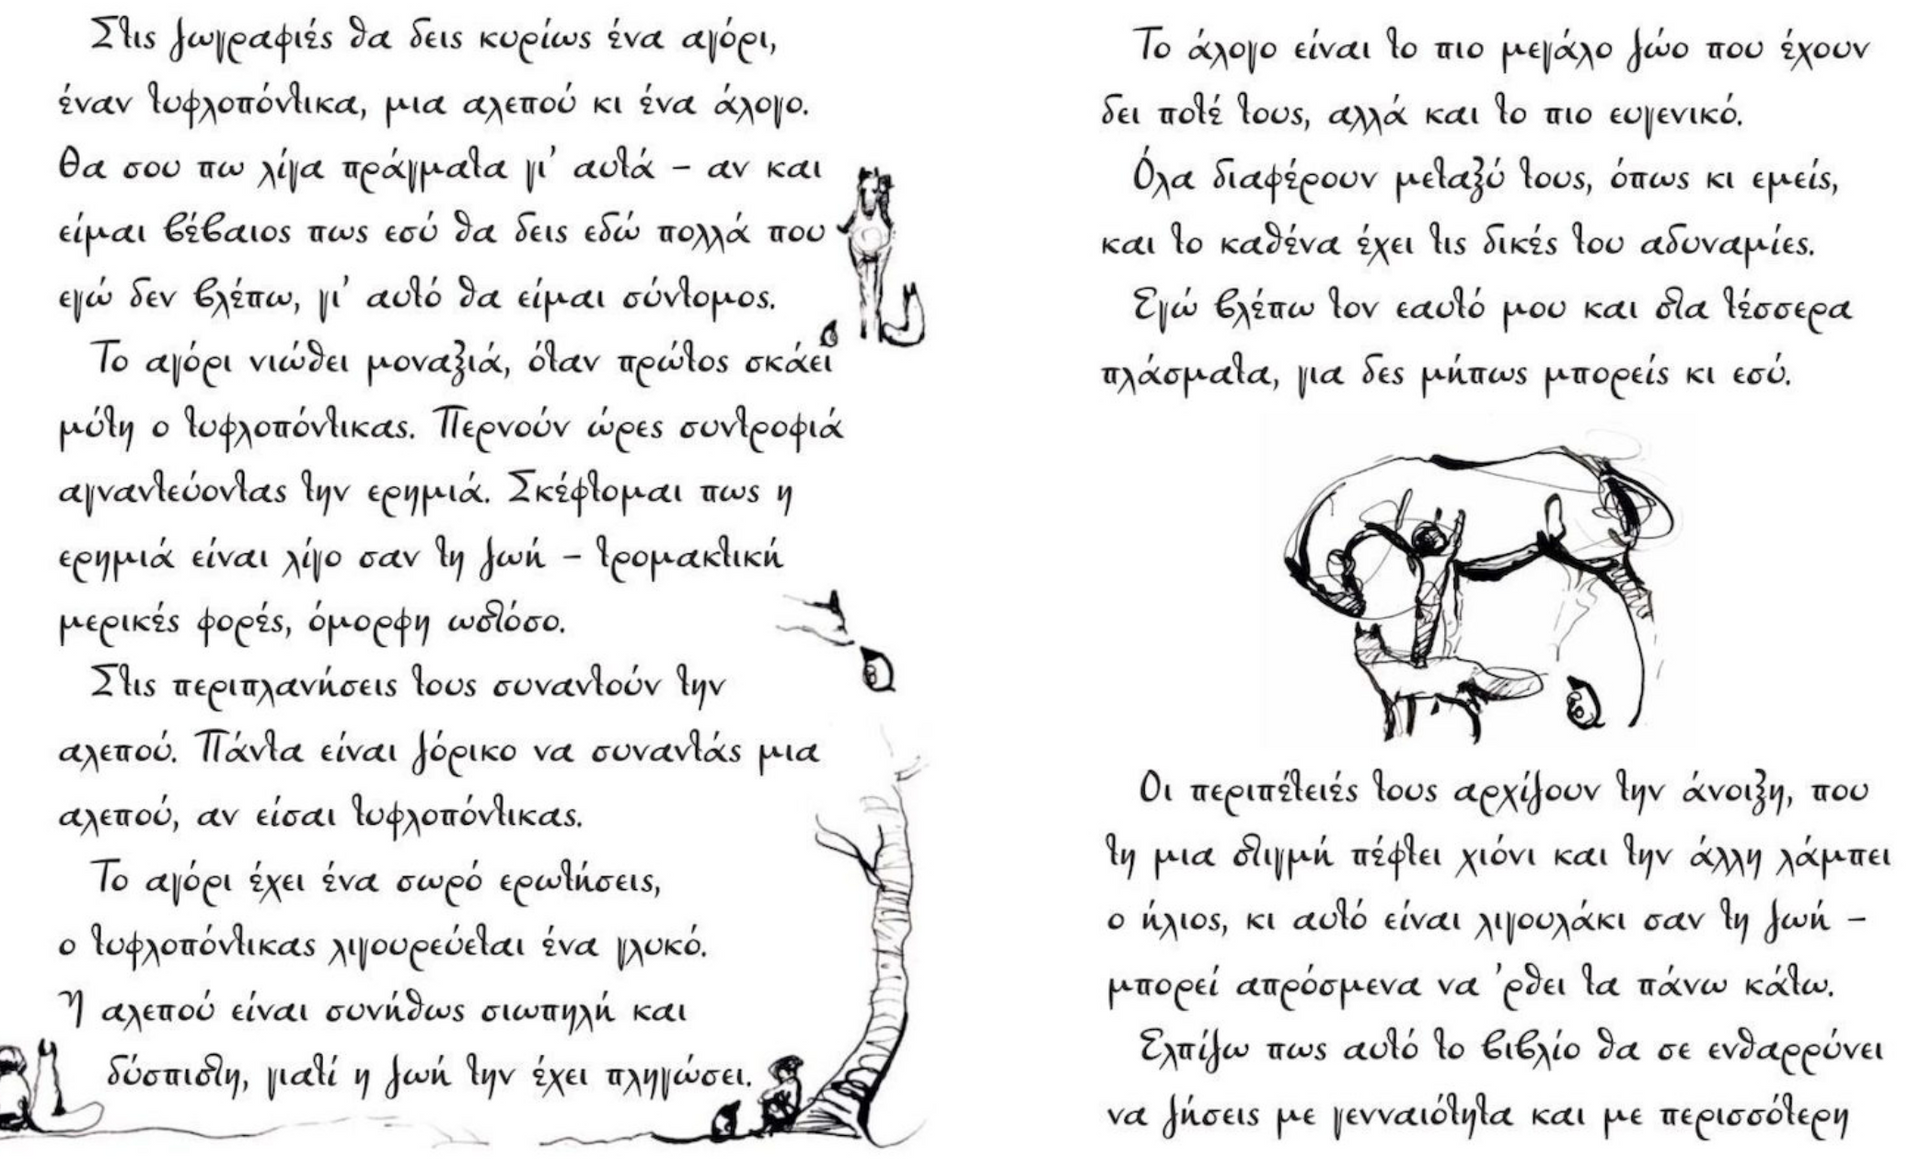 Στις ζωγραφιές θα δεις κυρίως ένα αγόρι,
έναν τυφλοπόντικα, μια αλεπού κι ένα άλογο.
Θα σου πω λίγα πράγματα γι' αυτά – αν και
είμαι βέβαιος πως εσύ θα δεις εδώ πολλά που
εγώ δεν βλέπω, γι' αυτό θα είμαι σύντομος.
Το αγόρι νιώθει μοναξιά, όταν πρώτος σκάει
μύτη ο τυφλοπόντικας. Περνούν ώρες συντροφιά
αγναντεύοντας την ερημιά. Σκέφτομαι πως η
ερημιά είναι λίγο σαν τη ζωή – τρομακτική
μερικές φορές, όμορφη ωστόσο.
Στις περιπλανήσεις τους συναντούν την
αλεπού. Πάντα είναι ζόρικο να συναντάς μια
αλεπού, αν είσαι τυφλοπόντικας.
Το αγόρι έχει ένα σωρό ερωτήσεις,
ο τυφλοπόντικας λιγουρεύεται ένα γλυκό.
Η αλεπού είναι συνήθως σιωπηλή και
δύσπιστη, γιατί η ζωή την έχει πληγώσει.
Το άλογο είναι το πιο μεγάλο ζώο που έχουν
δει ποτέ τους, αλλά και το πιο ευγενικό.
Όλα διαφέρουν μεταξύ τους, όπως κι εμείς,
και το καθένα έχει τις δικές του αδυναμίες.
Εγώ βλέπω τον εαυτό μου και στα τέσσερα
πλάσματα, για δες μήπως μπορείς κι εσύ.
Οι περιπέτειές τους αρχίζουν την άνοιξη, που
τη μια στιγμή πέφτει χιόνι και την άλλη λάμπει
ο ήλιος, κι αυτό είναι λιγουλάκι σαν τη ζωή –
μπορεί απρόσμενα να 'ρθει τα πάνω κάτω.
Ελπίζω πως αυτό το βιβλίο θα σε ενθαρρύνει
να ζήσεις με γενναιότητα και με περισσότερη